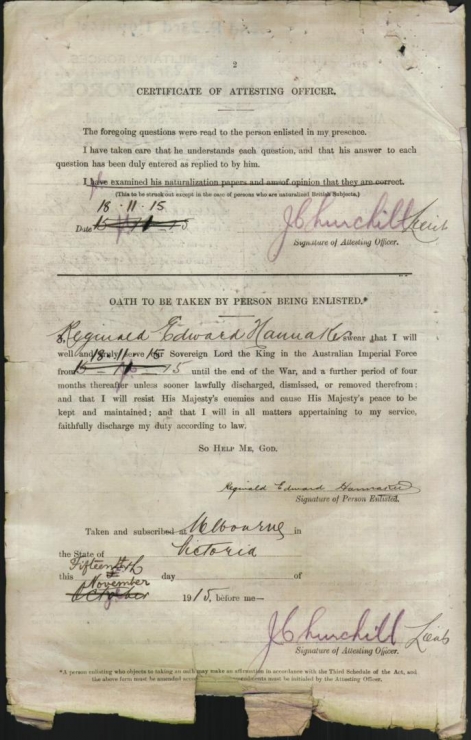 2
CERTIFICATE OF ATTESTING OFFICER.
The foregoing questions were read to the person enlisted in my presence.
I have taken care that he understands each question, and that his answer to each
question has been duly entered as replied to by him.
I have examined his naturalization papers and am of opinion that they are correct.
(This to be struck out except in the case of persons who are naturalized British Subjects.)
18 . 11 . 15
Date
J Churchill Lieut
Signature of Attesting Officer.
OATH TO BE TAKEN BY PERSON BEING ENLISTED.*
I, Reginald Edward Hannaker swear that I will
well and truly serve our Sovereign Lord the King in the Australian Imperial Force
18 11 15
from until the end of the War, and a further period of four
months thereafter unless sooner lawfully discharged, dismissed, or removed therefrom;
and that I will resist His Majesty's enemies and cause His Majesty's peace to be
kept and maintained; and that I will in all matters appertaining to my service,
faithfully discharge my duty according to law.
SO HELP ME, GOD.
Reginald Edward Hannaker
Signature of Person Enlisted.
Taken and subscribed at Melbourne in
the State of Victoria
Fifteenth
this day of
November
October 1915, before me—
J Churchill Lieut
Signature of Attesting Officer.
*A person enlisting who objects to taking an oath may make an affirmation in accordance with the Third Schedule of the Act, and
the above form must be amended must be initialed by the Attesting Officer.